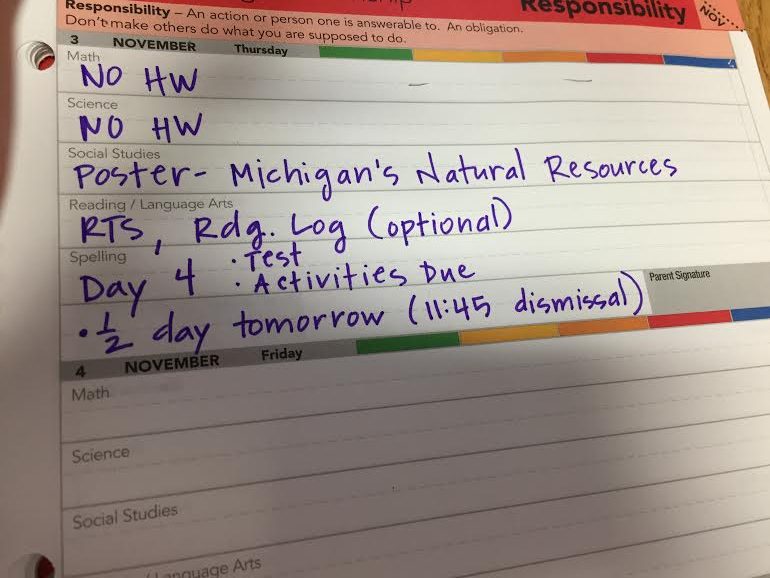 Responsibility
NOV....
Responsibility – An action or person one is answerable to. An obligation.
Don't make others do what you are supposed to do.
3 NOVEMBER Thursday
Math
NO HW
Science
NO HW
Social Studies
Poster- Michigan's Natural Resources
Reading / Language Arts
RTS, Rdg. Log (optional)
Spelling
Day 4 · Test
· Activities Due
Parent Signature
· 1/2 day tomorrow (11:45 dismissal)
4 NOVEMBER Friday
Math
Science
Social Studies
Language Arts